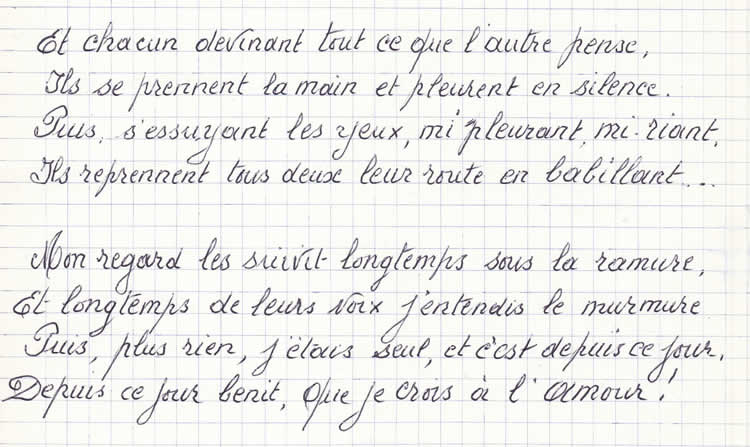 Et chacun devinant tout ce que l'autre pense,
Ils se prennent la main et pleurent en silence.
Puis, s'essuyant les yeux, mi pleurant, mi-riant,
Ils reprennent tous deux leur route en babillant...
Mon regard les suivit longtemps sous la ramure,
Et longtemps de leurs voix j'entendis le murmure
Puis, plus rien, j'étais seul, et c'est depuis ce jour,
Depuis ce jour benit, que je crois à l'amour!